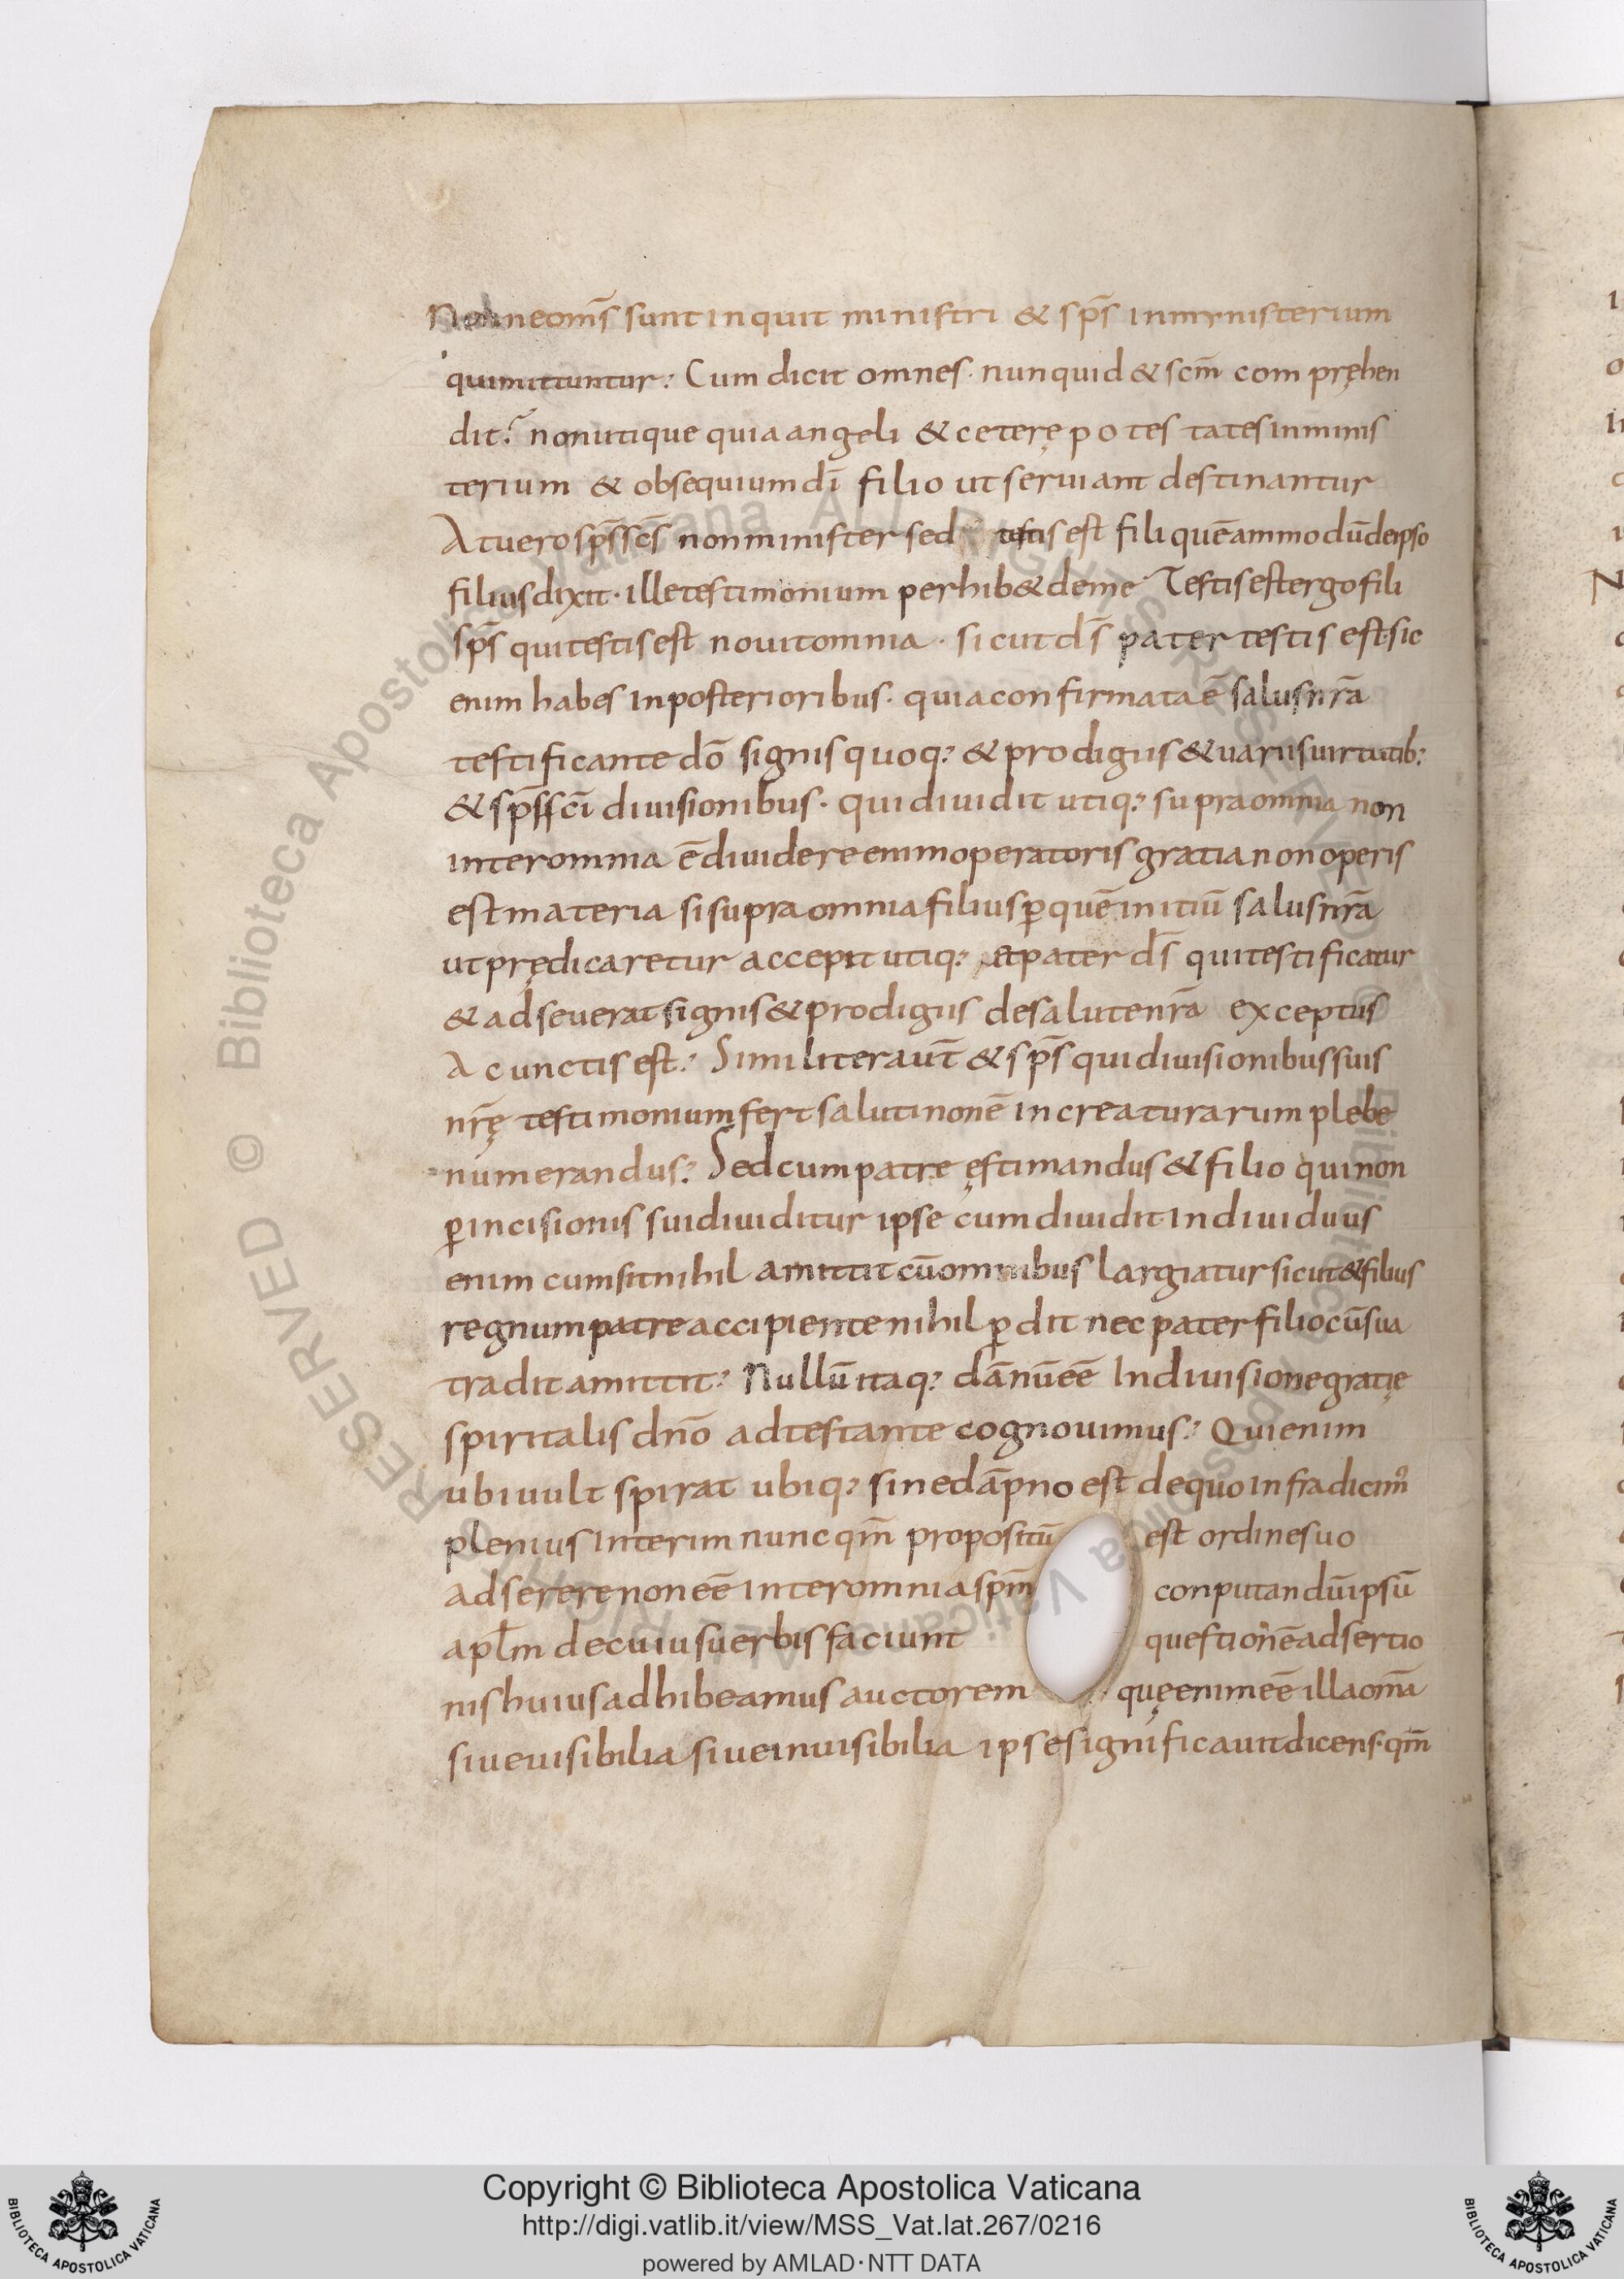 Nonne om̄s sunt inquit ministri & sp̄s in mynisterium
qui mittuntur? Cum dicit omnes · nunquid & sc̄m compręhen
dit? non utique quia angeli & ceterę potestates in minis
terium & obsequium dī filio ut serviant destinantur
At uero sp̄s sc̄s non minister sed testis est fili quēammodū de ipso
filius dixit · ille testimonium perhib& de me Testis est ergo fili
sp̄s qui testis est novit omnia · sicut d̄s pater testis est · sic
enim habes in posterioribus · quia confirmata ē salus nr̄a
testificante dō signis quoq; & prodigiis & variis virtutib;
& sp̄s sc̄i divisionibus · qui dividit utiq; supra omnia non
inter omnia ē dividere enim operatoris gratia non operis
est materia si supra omnia filius ꝑ quē initiū salus nr̄a
ut prędicaretur accepit utiq; et pater d̄s qui testificatur
& adseverat signis & prodigiis de salute nr̄a exceptus
A cunctis est? Similiter aut̄ & sp̄s qui divisionibus suis
nr̄ę testimonium fert saluti non ē in creaturarum plebe
numerandus? Sed cum patre ęstimandus & filio qui non
ꝑ incisionis sui dividitur ipse cum dividit Individuus
enim cum sit nihil amittit cū omnibus largiatur sicut & filius
regnum patre accipiente nihil ꝑdit nec pater filio cū sua
tradit amittit? Nullū itaq; dānū eē In divisione gratię
spiritalis dn̄o adtestante cognovimus? Qui enim
ubi vult spirat ubiq; sine dāpno est de quo infra dicim᾽
plenius Interim nunc qm̄ propositū est ordine suo
adserere non eē inter omnia sp̄m conputandū ipsū
apl̄m de cuius verbis faciunt questionē adsertio
nis huius adhibeamus auctorem · quę enim eē illa om̄a
sive visibilia sive invisibilia ipse significavit dicens · qm̄
RESERVED © Biblioteca Apostolica Vaticana ALL RIGHTS RESERVED © Biblioteca Apostolica Vaticana ALL RIGHTS
Copyright © Biblioteca Apostolica Vaticana
http://digi.vatlib.it/view/MSS_Vat.lat.267/0216
powered by AMLAD · NTT DATA
BIBLIOTECA APOSTOLICA VATICANA
BIBLIOTECA APOSTOLICA VATICANA